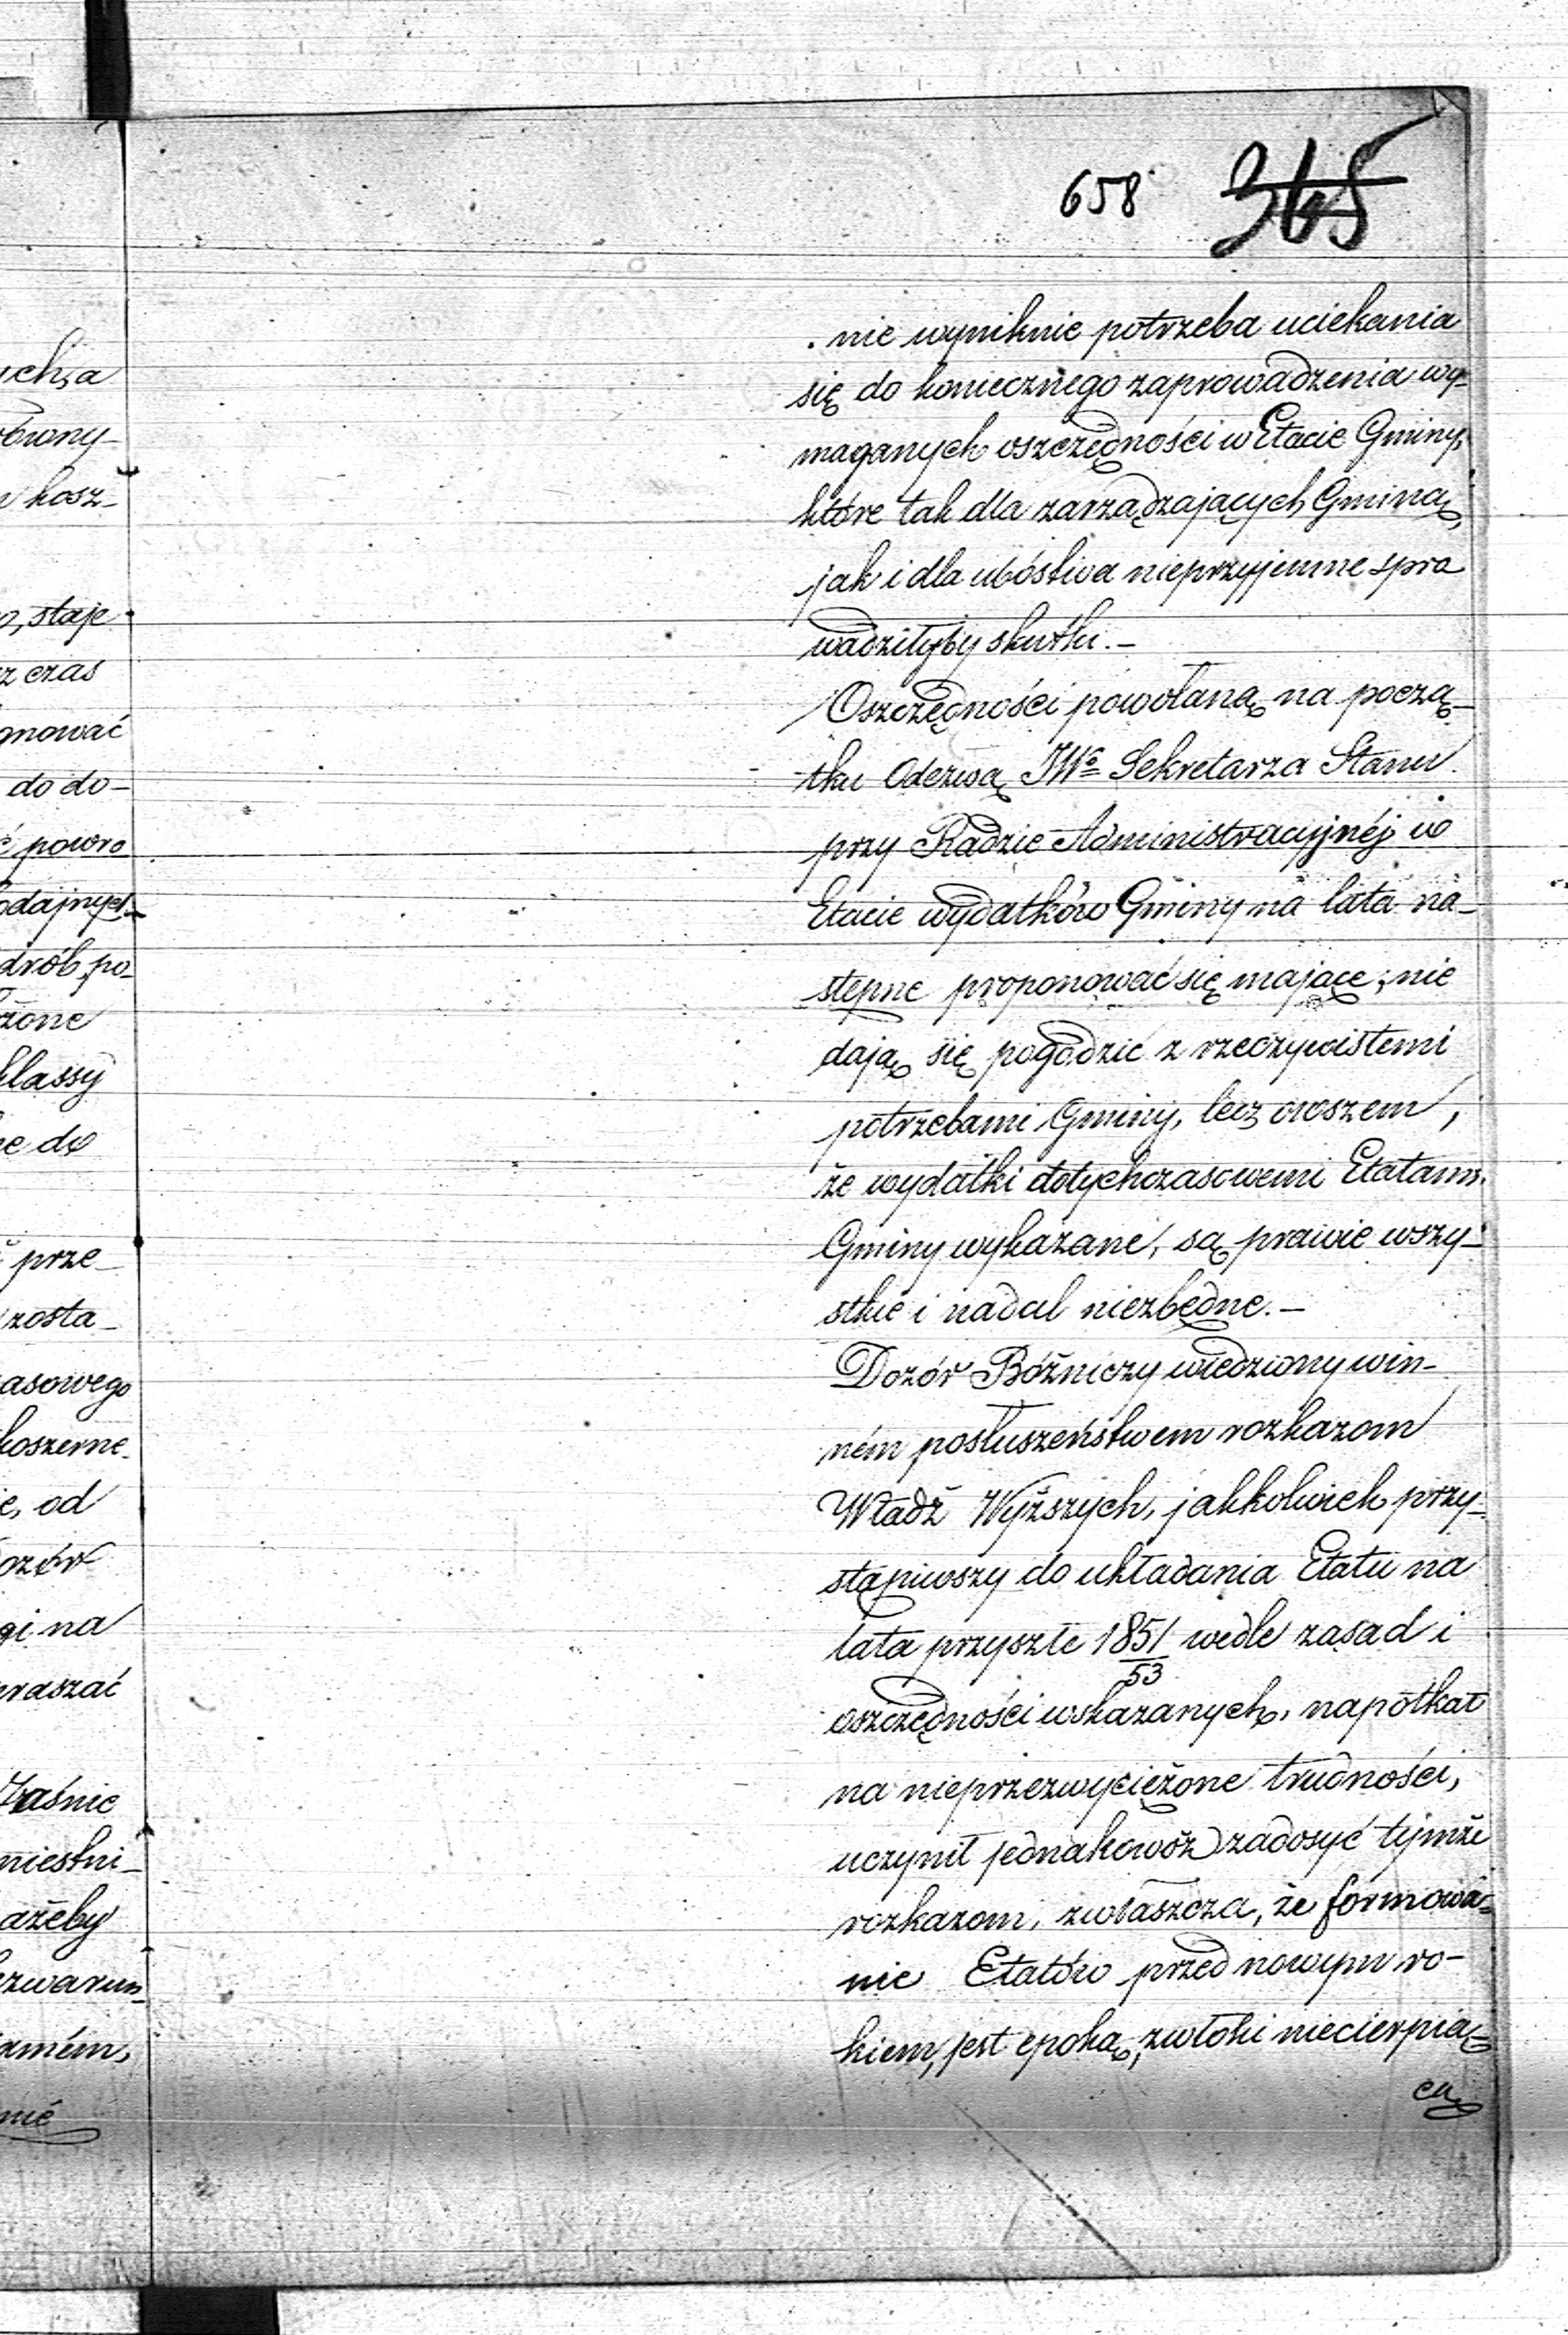 658 345
nie wyniknie potrzeba uciekania
się do koniecznego zaprowadzenia wy-
maganych oszczędności w Etacie Gminy,
które tak dla zarządzających Gminą,
jak i dla ubóstwa nieprzyjemne spra
wadziłyby skutki. –
Oszczędności powołaną na począ-
tku Odezwą JWo Sekretarza Stanu
przy Radzie Administracyjnéj w
Etacie wydatków Gminy na lata na-
stępne proponować się mające, nie
dają się pogodzić z rzeczywistemi
potrzebami Gminy, lecz owszem,
że wydatki dotychczasowemi Etatami
Gminy wykazane, są prawie wszy-
stkie i nadal niezbędne. –
Dozór Bóźniczy wiedziony win-
ném posłuszeństwem rozkazom
Władz Wyższych, jakkolwiek przy-
stąpiwszy do układania Etatu na
lata przyszłe 1851/53 wedle zasad i
oszczędności wskazanych, napotkał
na nieprzezwyciężone trudności,
uczynił jednakowoż zadosyć tymże
rozkazom, zwłaszcza, że formowa-
nie Etatów przed nowym ro-
kiem, jest epoką, zwłoki niecierpią-
cą
ych, a
kosz-
o, staje
z czas
gnować
do do-
powro
odajnych
drób, po-
żone
klassy
do
prze-
zosta-
asowego
koszerne
e, od
ozór
gi na
raszać
aśnie
miestni-
ażeby
zwarun-
amém,
nié